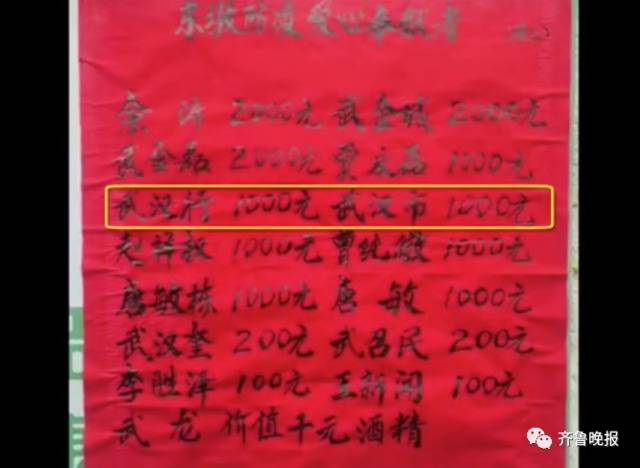 东坡防疫爱心奉献者
2000元 武金城 2000元
武金磊 2000元 1000元
武汉行 1000元 武汉市 1000元
赵 1000元 曹纯 1000元
唐敏栋 1000元 唐 敏 1000元
武汉奎 200元 武召民 200元
李胜泽 100元 王新阁 100元
武 龙 价值千元酒精
齐鲁晚报